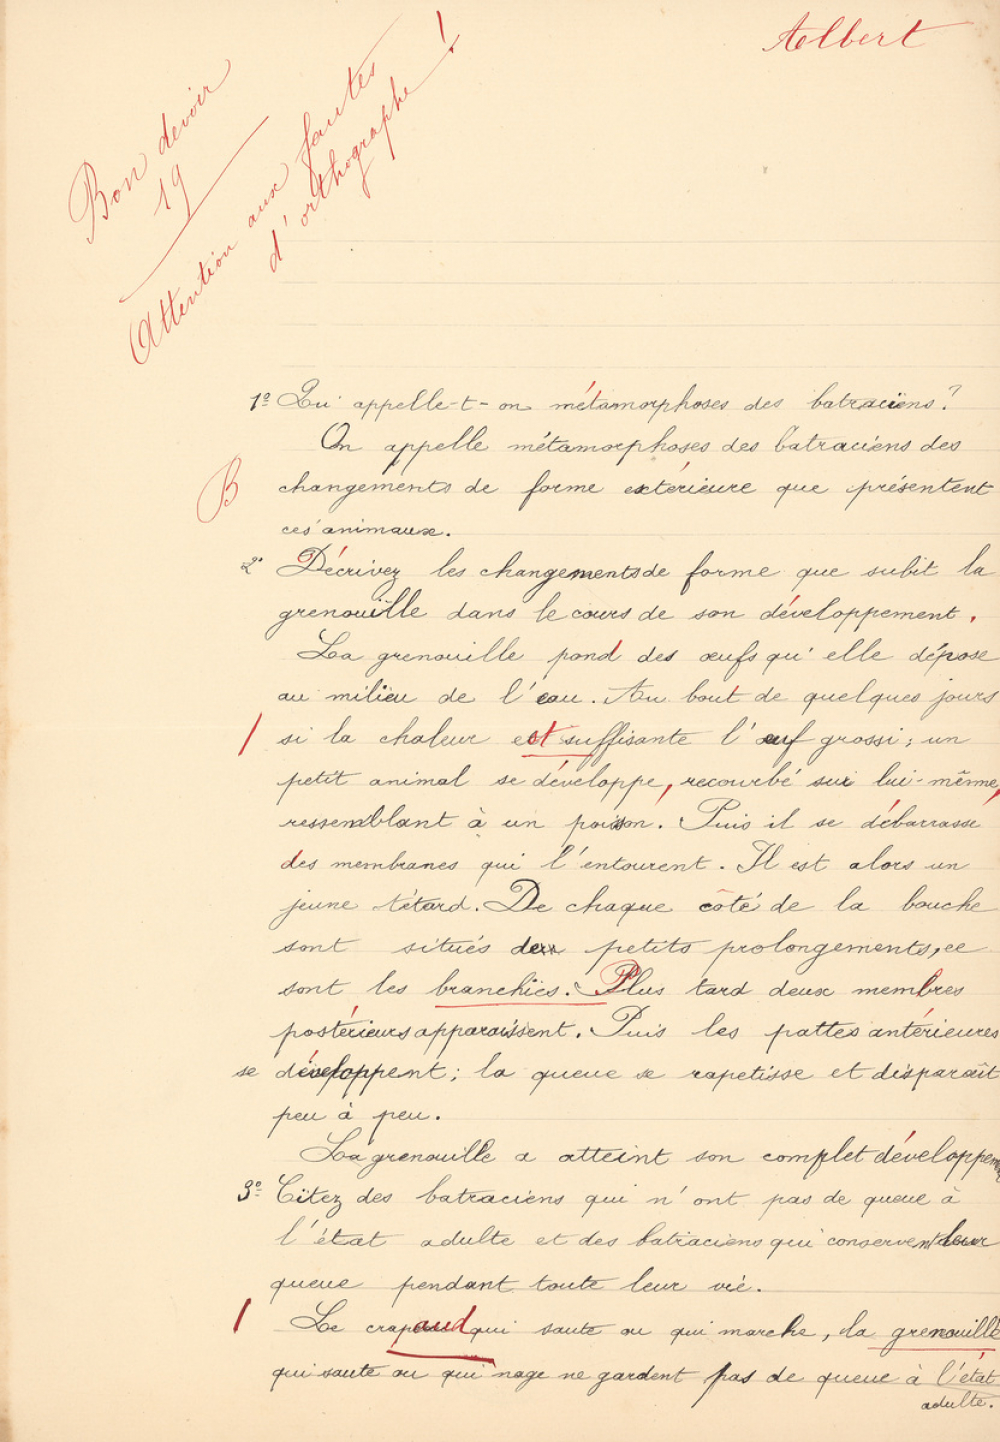 Aelbert
Bon devoir
19
Attention aux fautes
d'orthographe !
1º Qu' appelle-t-on métamorphoses des batraciens ?
On appelle métamorphoses des batraciens des
B
changements de forme extérieure que présentent
ces animaux.
2º Décrivez les changements de forme que subit la
grenouille dans le cours de son développement.
La grenouille pond des œufs qu' elle dépose
au milieu de l'eau. Au bout de quelques jours
si la chaleur est suffisante l'œuf grossi ; un
petit animal se développe, recourbé sur lui-même,
ressemblant à un poisson. Puis il se débarrasse
des membranes qui l'entourent. Il est alors un
jeune têtard. De chaque côté de la bouche
sont situés deux petits prolongements, ce
sont les branchies. Plus tard deux membres
postérieurs apparaissent. Puis les pattes antérieures
se développent ; la queue se rapetisse et disparaît
peu à peu.
La grenouille a atteint son complet développement
3º Citez des batraciens qui n'ont pas de queue à
l'état adulte et des batraciens qui conservent leur
queue pendant toute leur vie.
Le crapaud qui saute ou qui marche, la grenouille
qui saute ou qui nage ne gardent pas de queue à l'état
adulte.